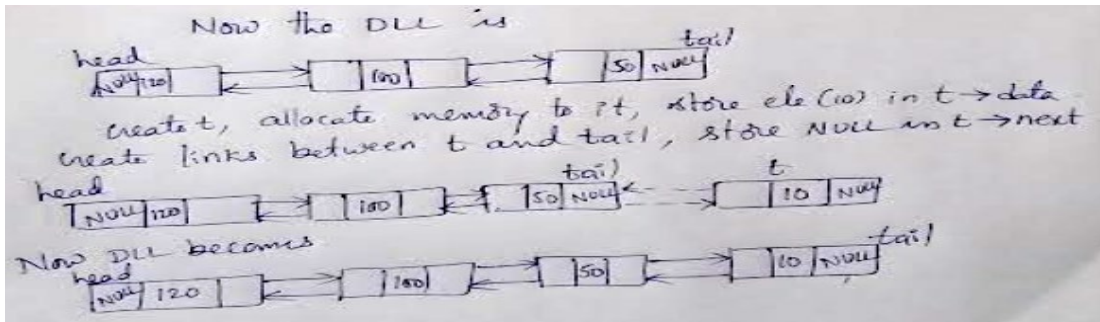 Now the DLL is
head tail
NULL 120 100 50 NULL
create t, allocate memory to it, store ele (10) in t→data
create links between t and tail, store NULL in t→next
head tail t
NULL 120 100 50 NULL 10 NULL
Now DLL becomes
head tail
NULL 120 100 50 10 NULL